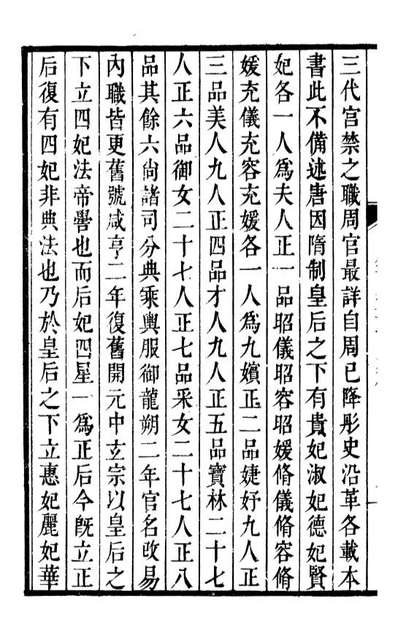 三代宮禁之職周官最詳自周已降彤史沿革各載本
書此不備述唐因隋制皇后之下有貴妃淑妃德妃賢
妃各一人爲夫人正一品昭儀昭容昭媛脩儀脩容脩
媛充儀充容充媛各一人爲九嬪正二品婕妤九人正
三品美人九人正四品才人九人正五品寶林二十七
人正六品御女二十七人正七品采女二十七人正八
品其餘六尚諸司分典乘輿服御龍朔二年官名改易
內職皆更舊號咸亨二年復舊開元中玄宗以皇后之
下立四妃法帝嚳也而后妃四星一爲正后今旣立正
后復有四妃非典法也乃於皇后之下立惠妃麗妃華